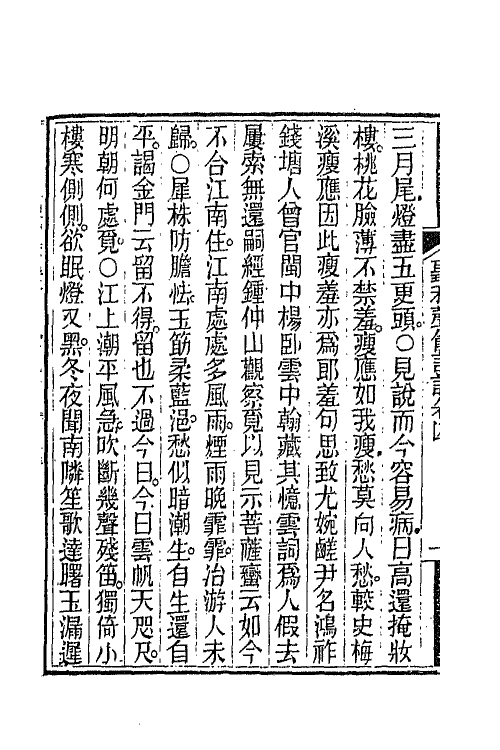 三月尾。燈盡五更頭。〇見說而今容易病。日高還掩妝
樓。桃花臉薄不禁羞。瘦應如我瘦。愁莫向人愁。較史梅
溪瘦應因此瘦羞亦為耶羞句思致尤婉鹺尹名鴻祚
錢塘人曾官閩中楊臥雲中翰藏其憶雲詞為人假去
屢索無還嗣經鍾仲山觀察覓以見示菩薩蠻云如今
不合江南住。江南處處多風雨。煙雨晚霏霏。冶游人未
歸。〇犀株防膽怯。玉筯柔藍浥。愁似暗潮生。自生還自
平。謁金門云留不得。留也不過今日。今日雲帆天咫尺。
明朝何處覓。〇江上潮平風急。吹斷幾聲殘笛。獨倚小
樓寒側側。欲眠燈又黑。冬夜聞南隣笙歌達曙玉漏遲